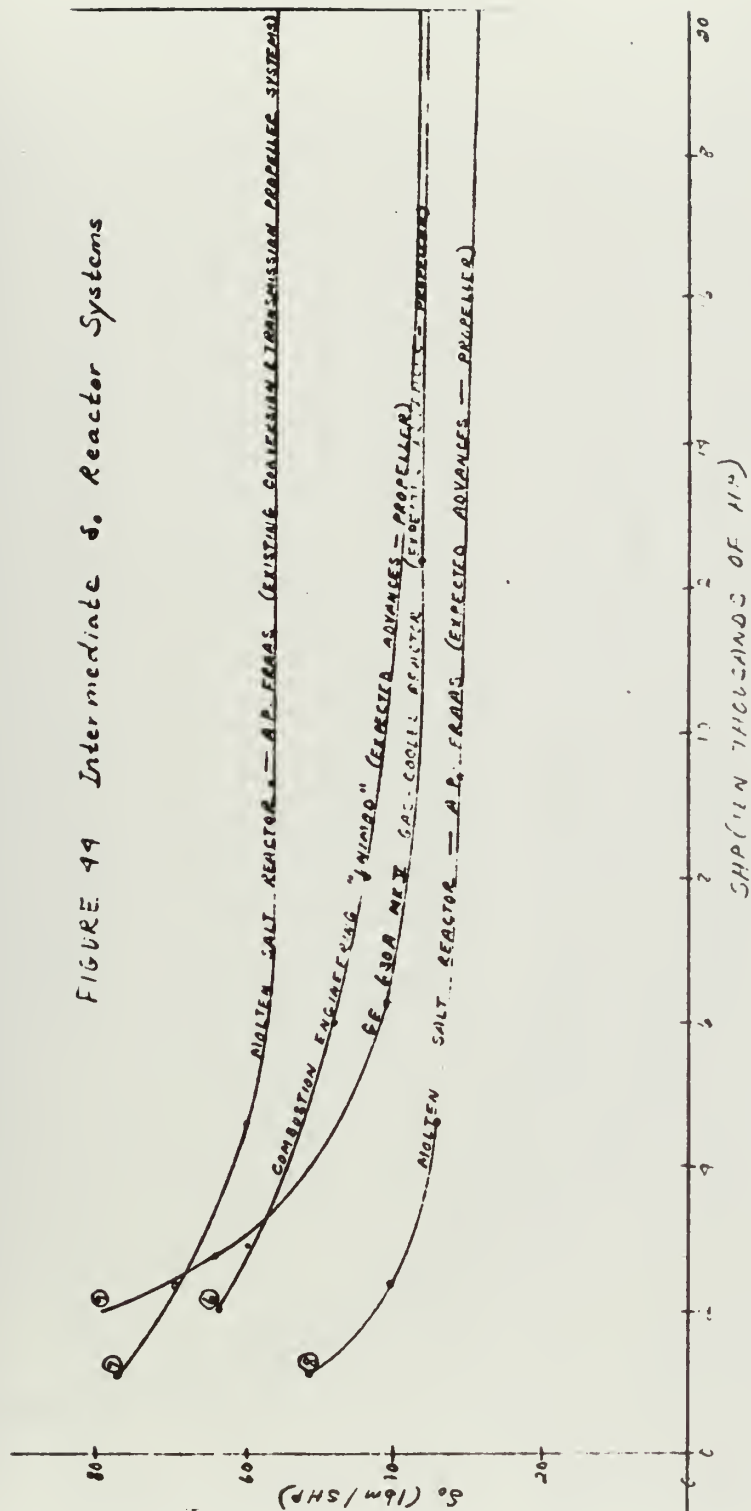 FIGURE 44 Intermediate δ. Reactor Systems
MOLTEN SALT REACTOR - A.P. FRAAS (EXISTING CONVERSION & TRANSMISSION PROPELLER SYSTEMS)
COMBUSTION ENGINEERING "UNIMOD" (EXPECTED ADVANCES - PROPELLER)
GE 630A MK V GAS-COOLED REACTOR (EXPECTED ADVANCES - PROPELLER)
MOLTEN SALT REACTOR - A.P. FRAAS (EXPECTED ADVANCES - PROPELLER)
7
6
8
80
60
20
(lbm/SHP)
0
4
6
12
14
8
20
SHP (IN THOUSANDS OF HP)